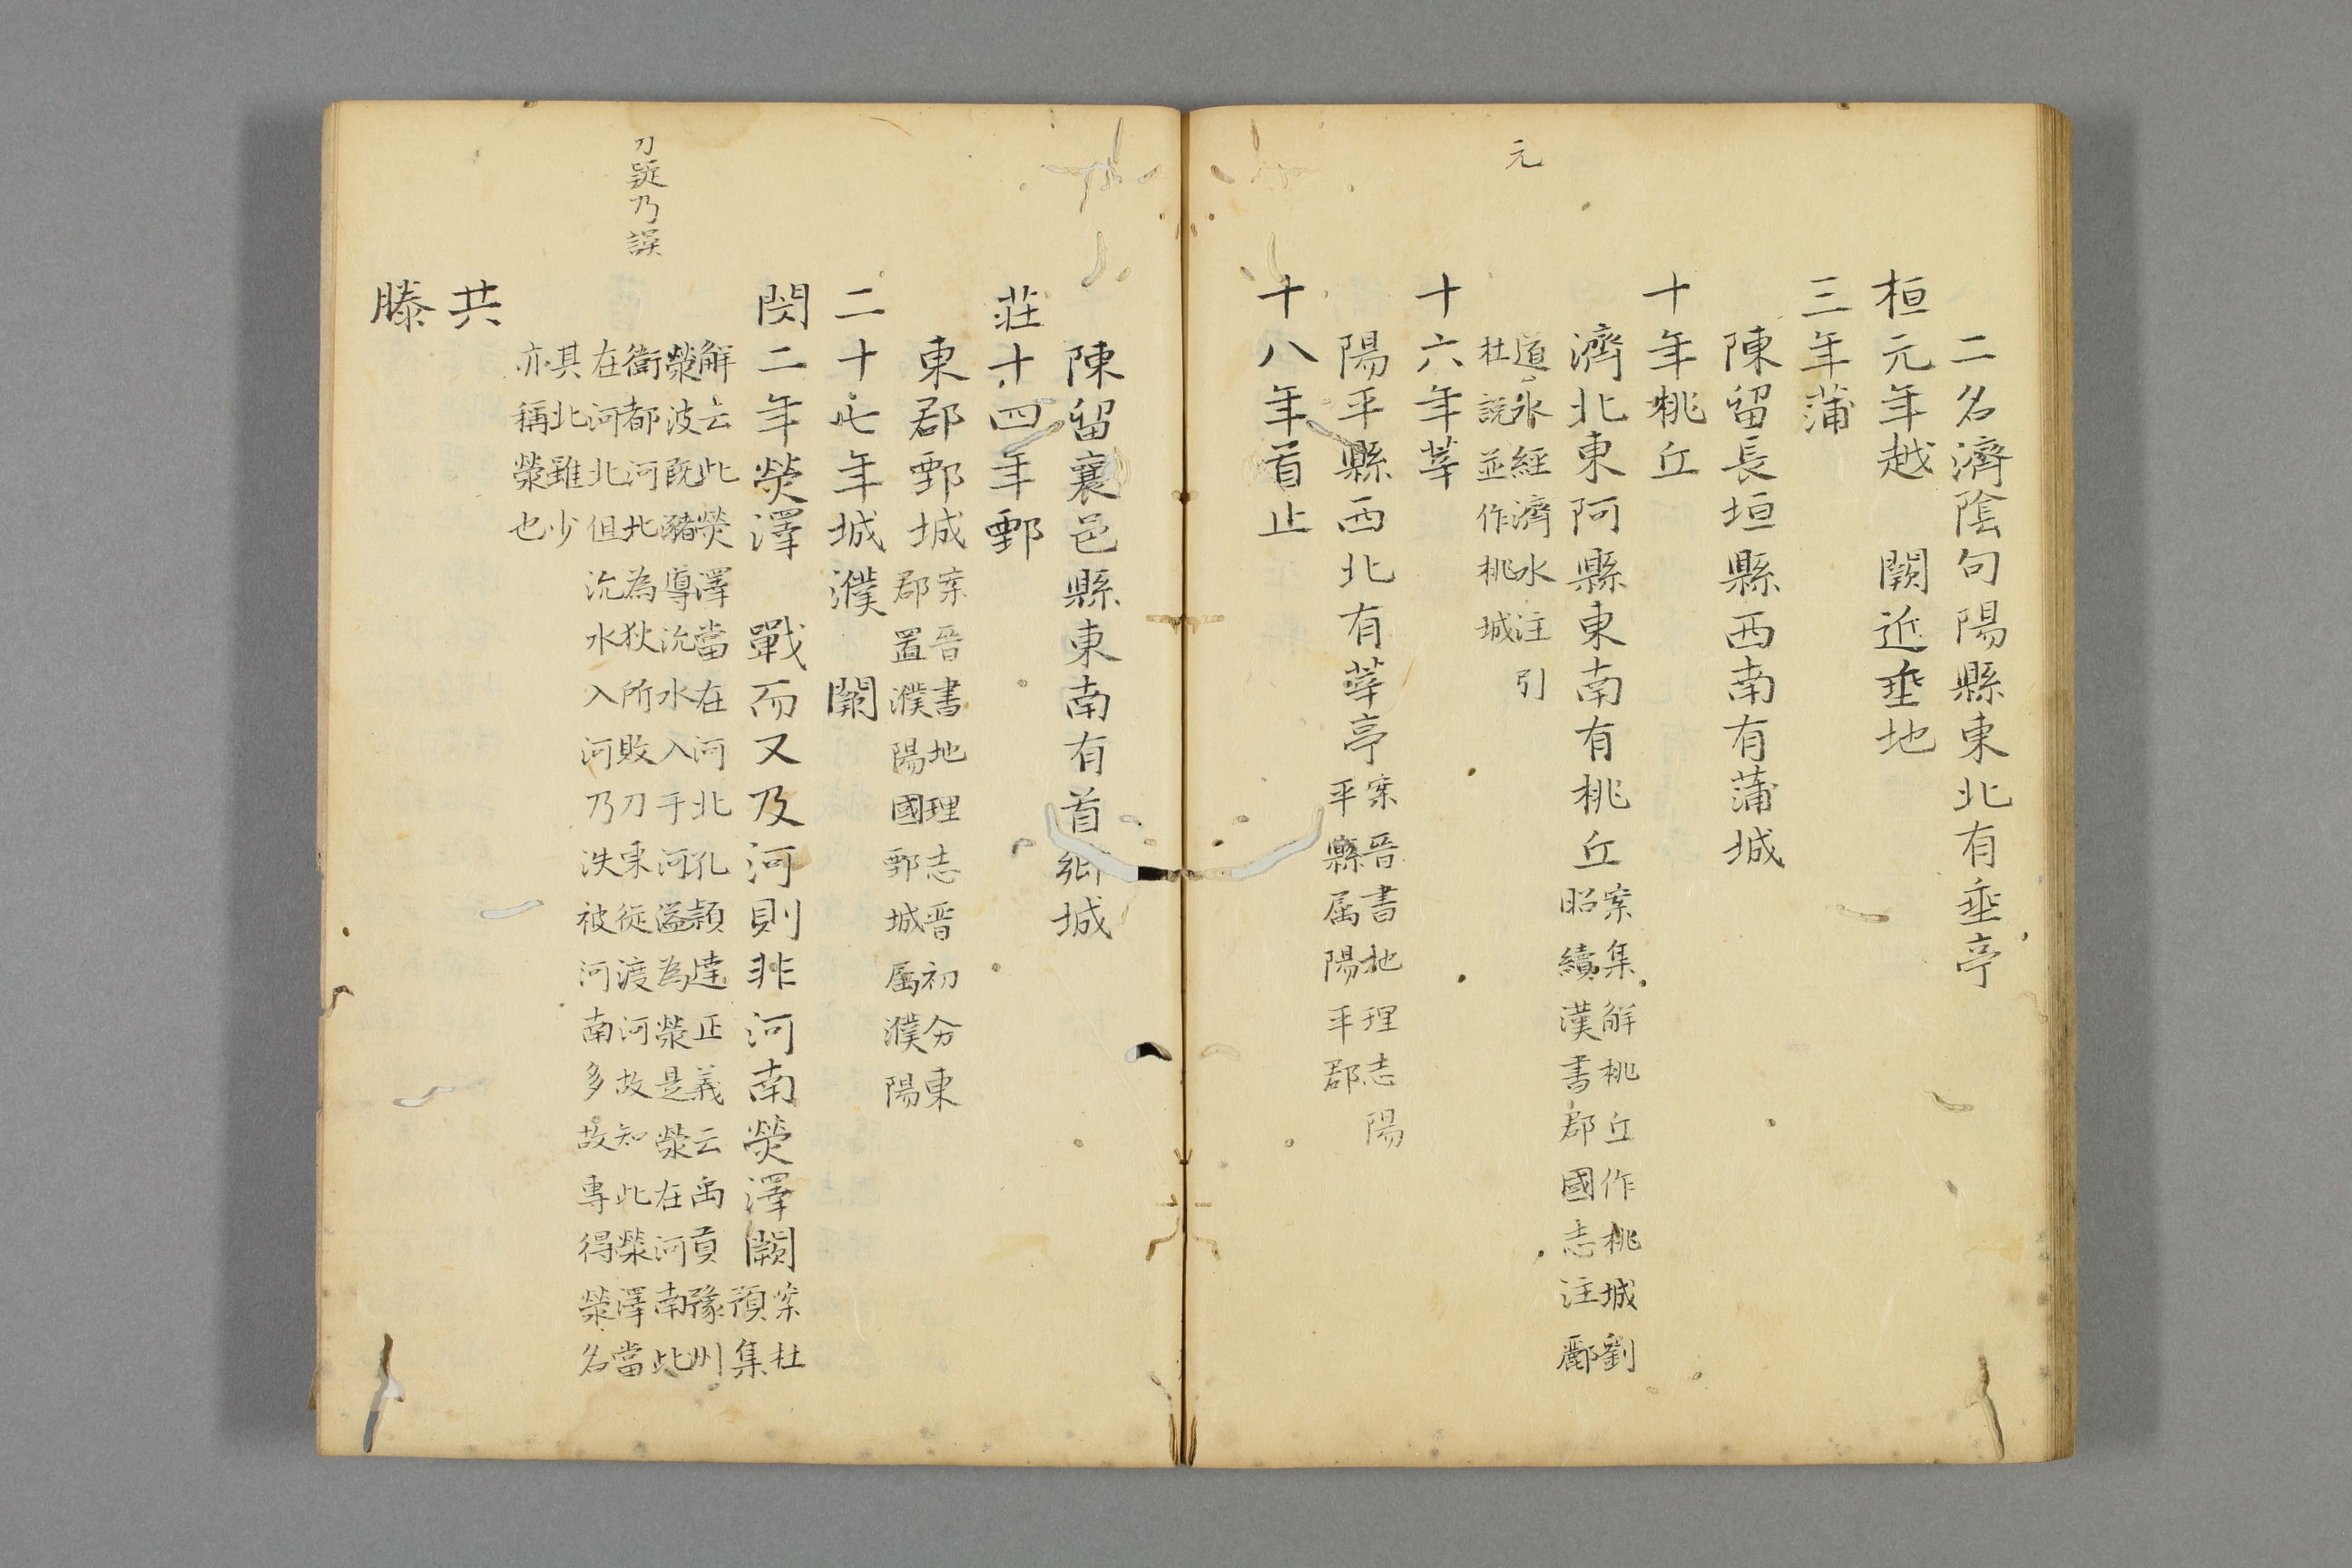 元
二名濟陰句陽縣東北有垂亭
桓元年越　闕近垂地
三年蒲
陳留長垣縣西南有蒲城
十年桃丘
濟北東阿縣東南有桃丘
案集解桃丘作桃城劉
昭續漢書郡國志注酈
道元水經濟水注引
杜説並作桃城
十六年莘
陽平縣西北有莘亭
案晉書地理志陽
平縣属陽平郡
十八年首止
陳留襄邑縣東南有首鄉城
莊十四年鄄
東郡鄄城
案晉書地理志晋初分東
郡置濮陽國鄄城属濮陽
二十七年城濮　闕
閔二年熒澤　戰而又及河則非河南熒澤闕
案杜
預集
解云此熒澤當在河北孔頴達正義云禹貢豫州
滎波既瀦導沇水入于河溢為滎是滎在河南此
衛都河北為狄所敗刀東從渡河故知此滎澤當
在河北但沇水入河乃泆被河南多故專得滎名
其北雖少
亦稱滎也
刀疑乃誤
共
滕